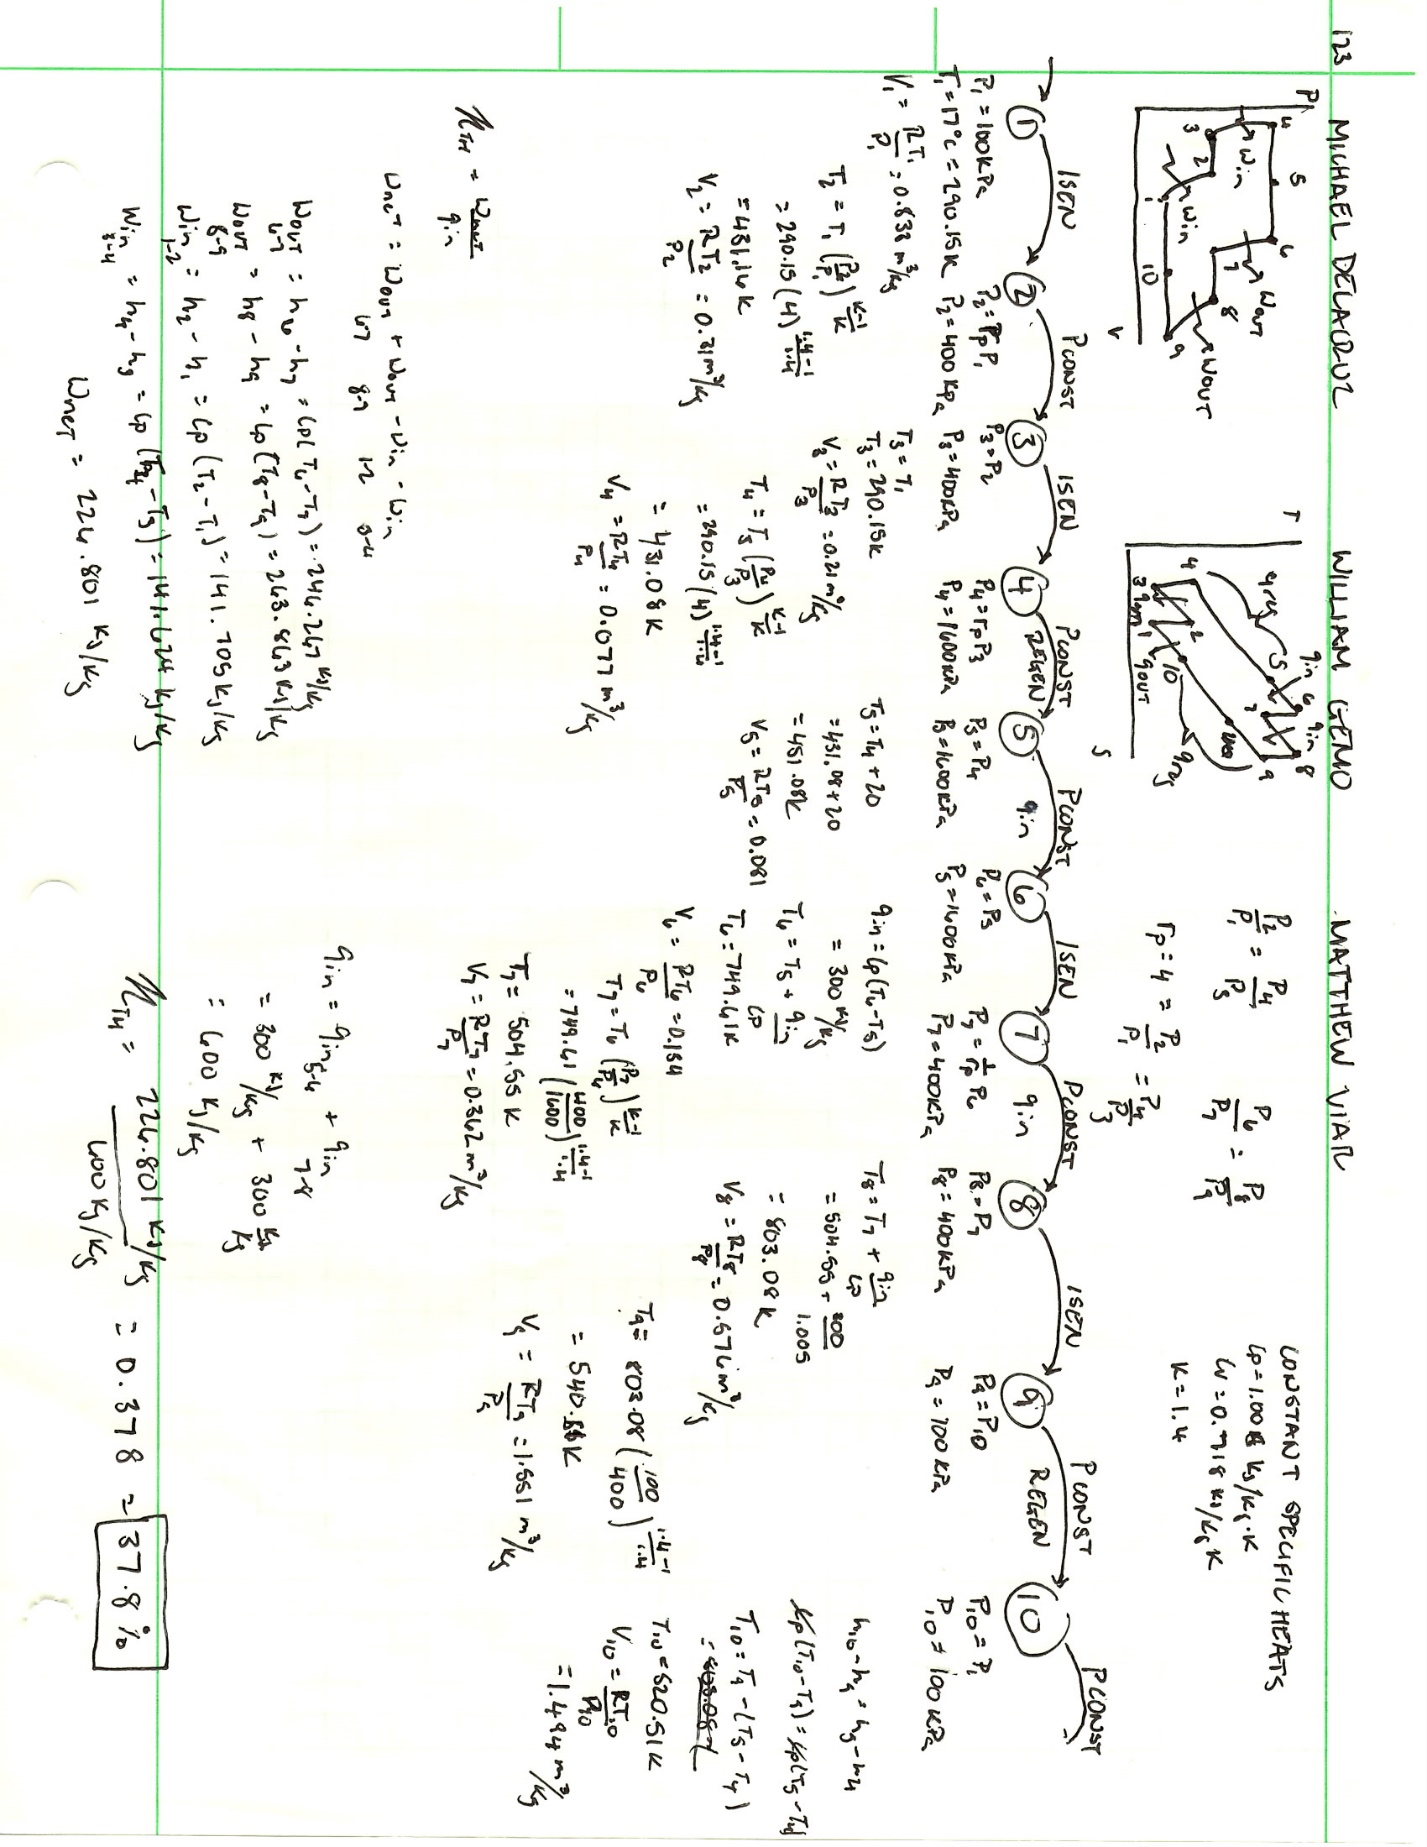 123 MICHAEL DELACRUZ WILLIAM GEMO MATTHEW VIAR
P
4 5 6
3 2 7 8
1 10 9
Win
Win
WOUT
WOUT
V
T
qreg
qin qin
4 5 6 7 8
3 2 1 10 9
qout
qreg
S
P2/P1 = P4/P3 P6/P7 = P8/P9
rp = 4 = P2/P1 = P4/P3
CONSTANT SPECIFIC HEATS
Cp = 1.005 kJ/kg·K
Cv = 0.718 kJ/kg K
K = 1.4
ISEN PCONST ISEN PCONST REGEN PCONST qin ISEN PCONST qin ISEN PCONST REGEN PCONST
1 2 3 4 5 6 7 8 9 10
P1 = 100kPa
T1 = 17°C = 290.15K
V1 = RT1/P1 = 0.833 m³/kg
P2 = rpP1
P2 = 400kPa
T2 = T1 (P2/P1)^(K-1/K)
= 290.15 (4)^(1.4-1/1.4)
= 431.16K
V2 = RT2/P2 = 0.31 m³/kg
P3 = P2
P3 = 400kPa
T3 = T1
T3 = 290.15K
V3 = RT3/P3 = 0.21 m³/kg
P4 = rpP3
P4 = 1600kPa
T4 = T3 (P4/P3)^(K-1/K)
= 290.15 (4)^(1.4-1/1.4)
= 431.08K
V4 = RT4/P4 = 0.077 m³/kg
P5 = P4
P5 = 1600kPa
T5 = T4 + 20
= 431.08 + 20
= 451.08K
V5 = RT5/P5 = 0.081
P6 = P5
P5 = 1600kPa
qin = Cp(T6-T5)
= 300 kJ/kg
T6 = T5 + qin/Cp
T6 = 749.61K
V6 = RT6/P6 = 0.134
P7 = 1/rp P6
P7 = 400kPa
T7 = T6 (P7/P6)^(K-1/K)
= 749.61 (400/1600)^(1.4-1/1.4)
T7 = 504.55 K
V7 = RT7/P7 = 0.362 m³/kg
P8 = P7
P8 = 400kPa
T8 = T7 + qin/Cp
= 504.55 + 300/1.005
= 803.08 K
V8 = RT8/P8 = 0.576 m³/kg
P9 = P10
P9 = 100kPa
T9 = 803.08 (100/400)^(1.4-1/1.4)
= 540.K
V9 = RT9/P9 = 1.551 m³/kg
P10 = P1
P10 = 100kPa
h10 - h9 = h5 - h4
Cp(T10-T9) = Cp(T5-T4)
T10 = T9 - (T5 - T4)
T10 = 520.51K
V10 = RT10/P10
= 1.494 m³/kg
ηTH = wnet/qin
Wnet = Wout 67 + Wout 89 - Win 12 - Win 34
Wout 6-7 = h6 - h7 = Cp(T6-T7) = 246.267 kJ/kg
Wout 8-9 = h8 - h9 = Cp(T8-T9) = 263.863 kJ/kg
Win 1-2 = h2 - h1 = Cp(T2-T1) = 141.705 kJ/kg
Win 3-4 = h4 - h3 = Cp(T4-T3) = 141.624 kJ/kg
Wnet = 226.801 kJ/kg
qin = qin 5-6 + qin 7-8
= 300 kJ/kg + 300 kJ/kg
= 600 kJ/kg
ηTH = 226.801 kJ/kg / 600 kJ/kg = 0.378 ≈ 37.8%